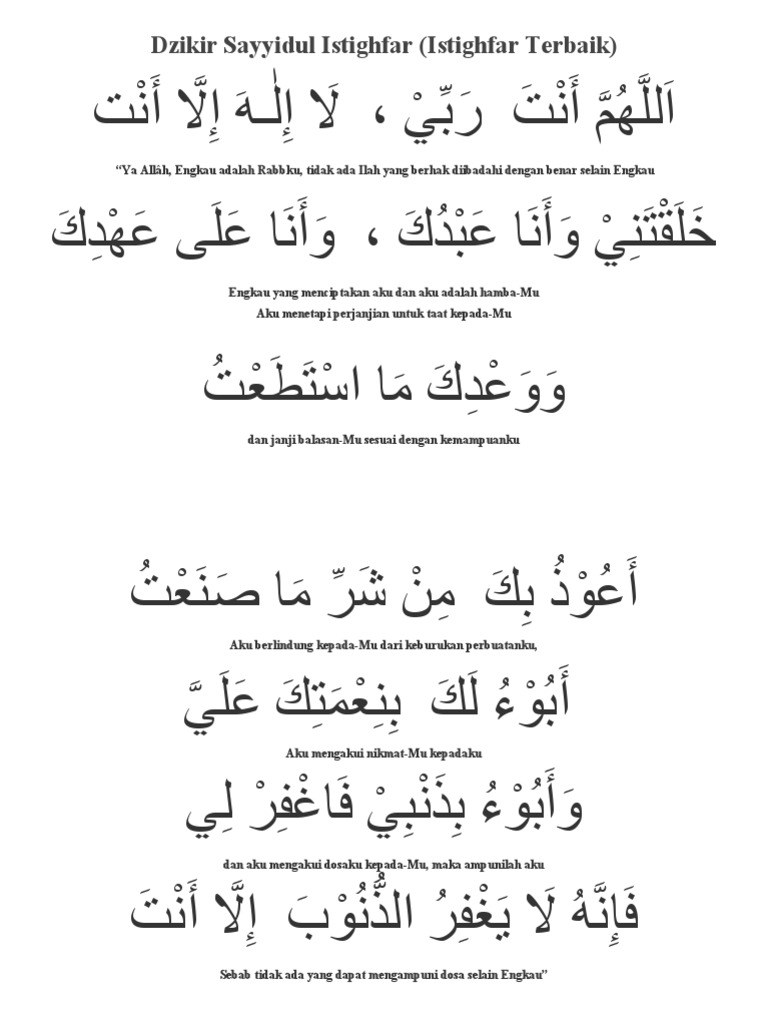 Dzikir Sayyidul Istighfar (Istighfar Terbaik)
اَللَّهُمَّ أَنْتَ رَبِّيْ ، لَا إِلٰـهَ إِلَّا أَنْت
“Ya Allâh, Engkau adalah Rabbku, tidak ada Ilah yang berhak diibadahi dengan benar selain Engkau
خَلَقْتَنِيْ وَأَنَا عَبْدُكَ ، وَأَنَا عَلَى عَهْدِكَ
Engkau yang menciptakan aku dan aku adalah hamba-Mu
Aku menetapi perjanjian untuk taat kepada-Mu
وَوَعْدِكَ مَا اسْتَطَعْتُ
dan janji balasan-Mu sesuai dengan kemampuanku
أَعُوْذُ بِكَ مِنْ شَرِّ مَا صَنَعْتُ
Aku berlindung kepada-Mu dari keburukan perbuatanku,
أَبُوْءُ لَكَ بِنِعْمَتِكَ عَلَيَّ
Aku mengakui nikmat-Mu kepadaku
وَأَبُوْءُ بِذَنْبِيْ فَاغْفِرْ لِي
dan aku mengakui dosaku kepada-Mu, maka ampunilah aku
فَإِنَّهُ لَا يَغْفِرُ الذُّنُوْبَ إِلَّا أَنْتَ
Sebab tidak ada yang dapat mengampuni dosa selain Engkau”